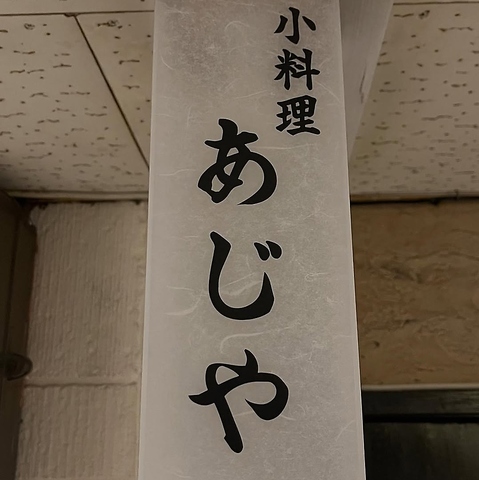 小料理
あじや